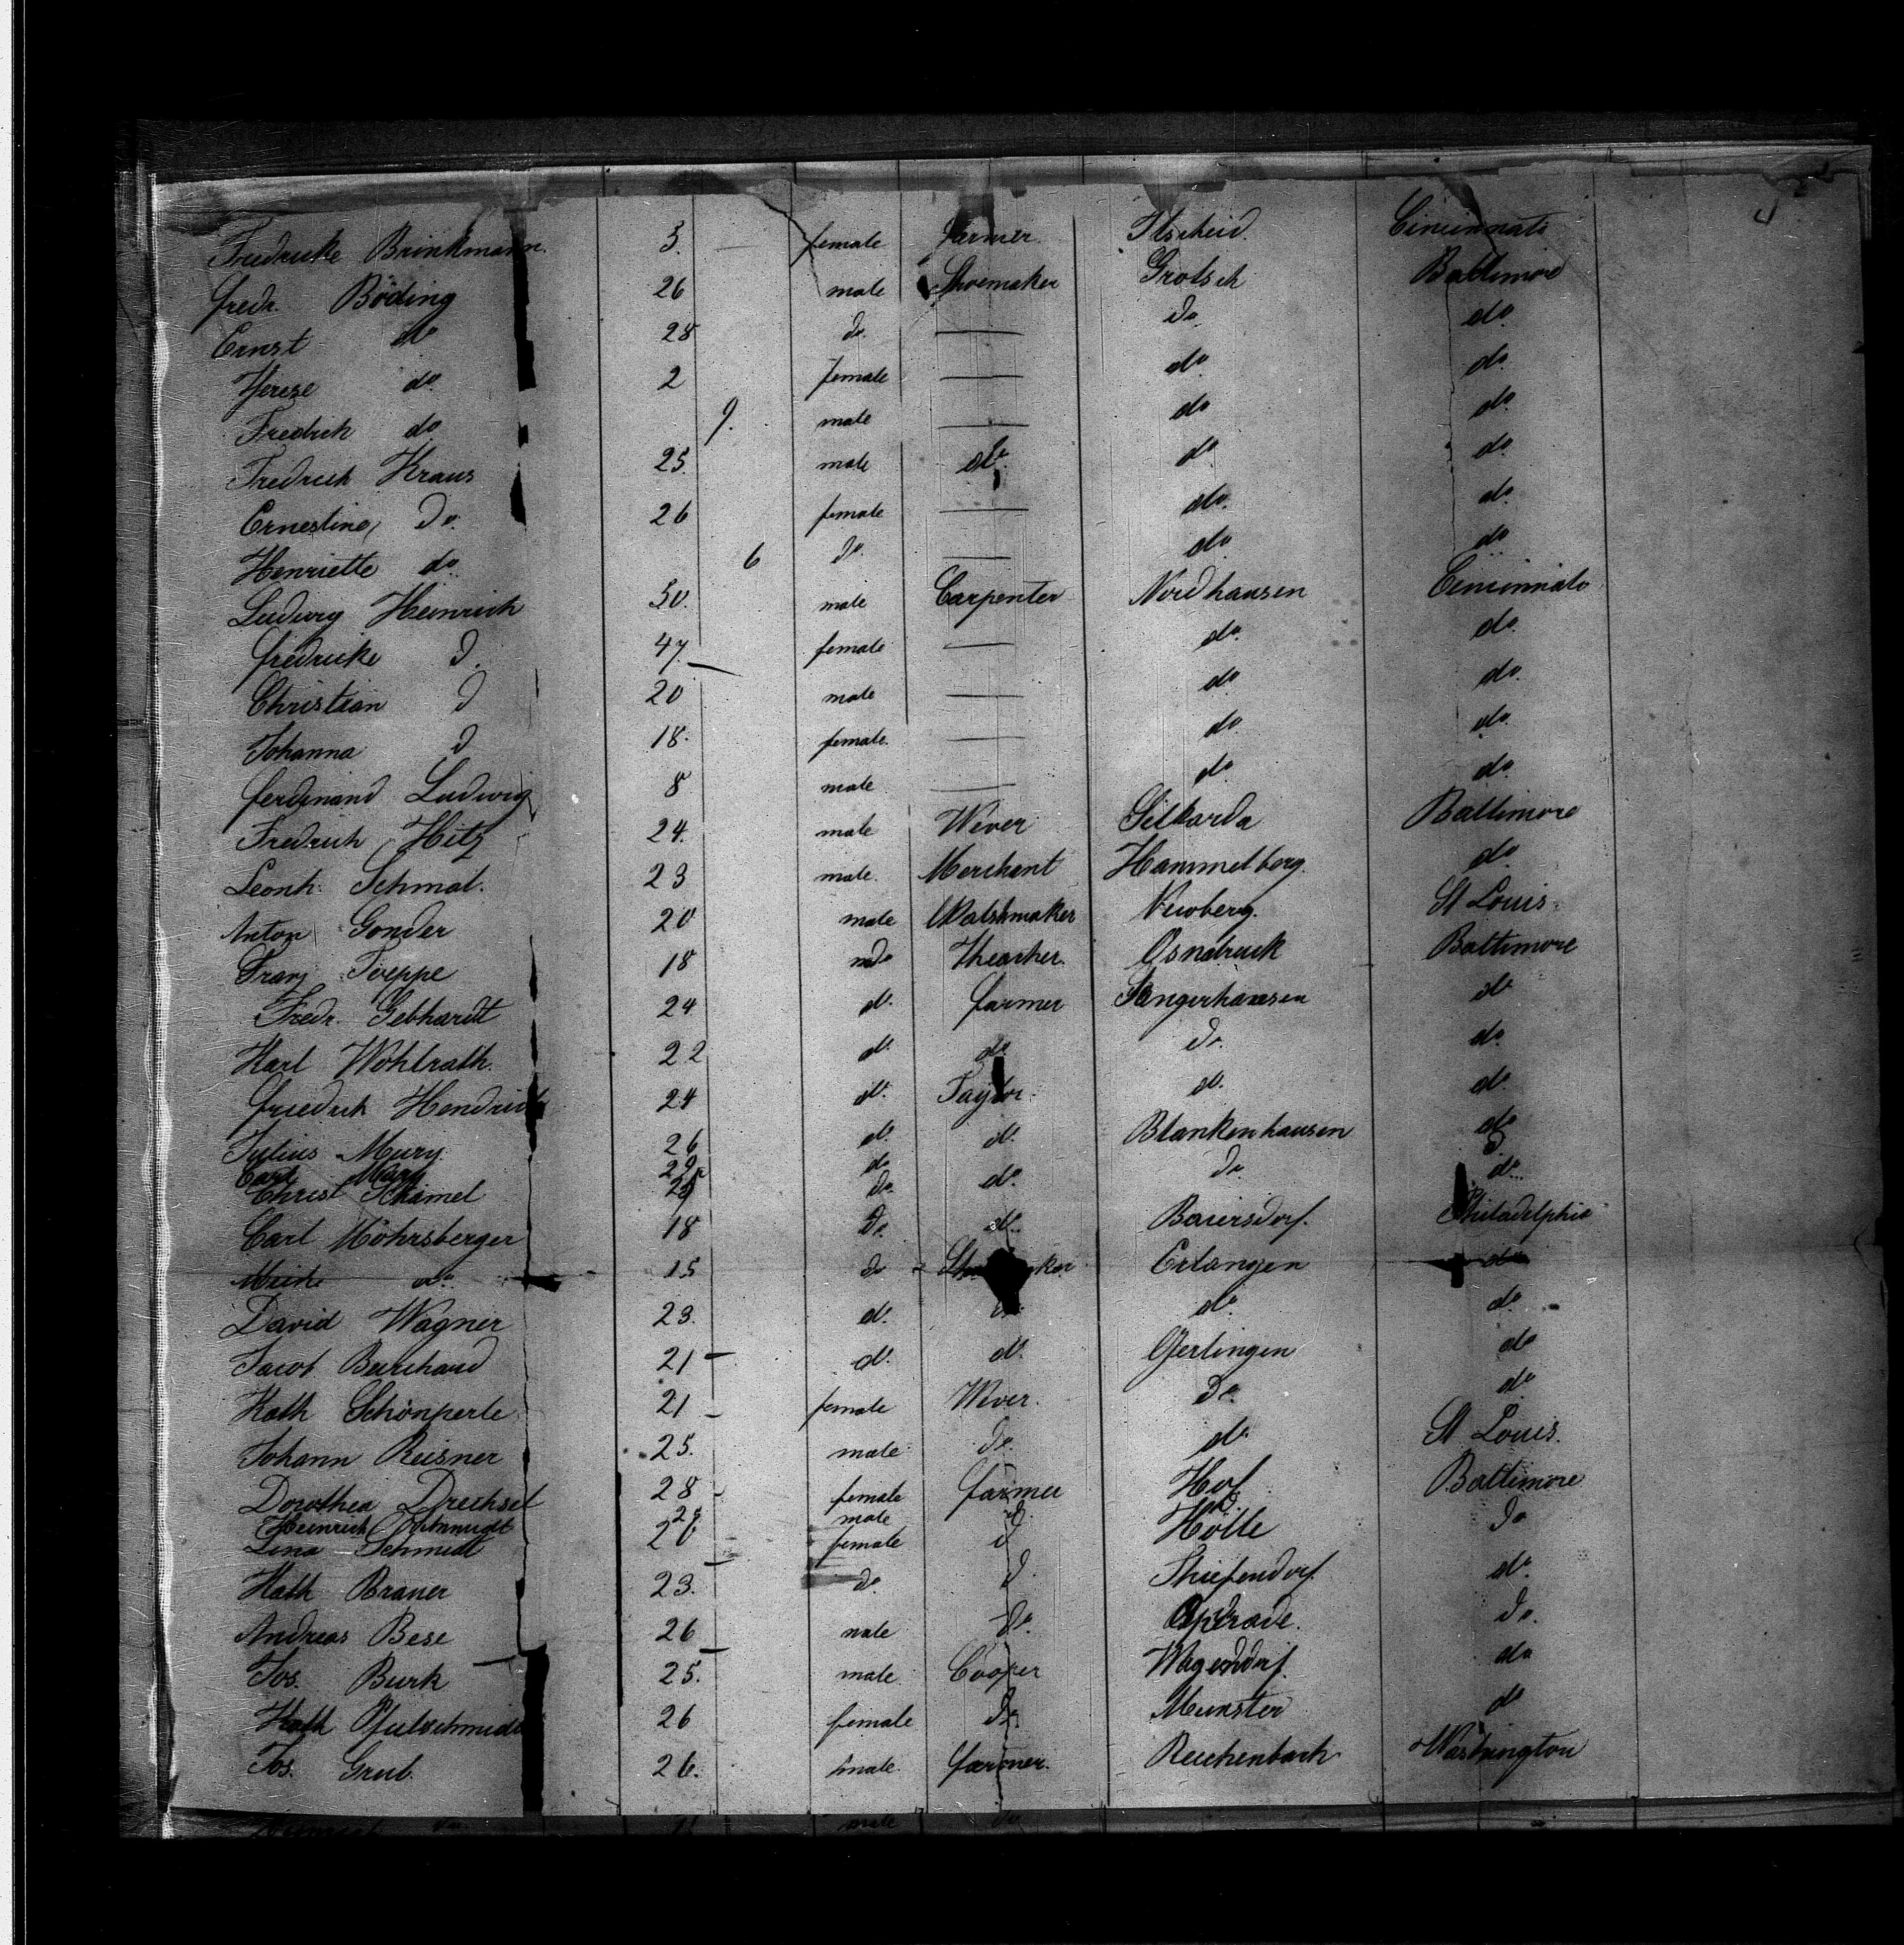 4 2
Fredricke Brinkmann. 3. — female farmer Ilscheid. Cincinnati
fredr. Böding 26 male Shoemaker Grotsch Baltimore
Ernst do 28 do. — do do.
Hereze do. 2 female — do. do.
Fredrich do 9. male — do do.
Fredrich Kraus 25. male do. do do.
Ernestine, do. 26 female — do. do.
Henriette do. 6 do. — do do
Ludwig Heinrich 50. male Carpenter Nordhausen Cincinnati
fredricke d. 47. — female — do. do.
Christian d 20 male — do do.
Johanna d 18. female. — do. do.
ferdinand Ludwig 8 male — do do.
Fredrich Hitz 24. male Wever Gilkarda Baltimore
Leonh. Schmal. 23 male. Merchant Hammelberg. do.
Anton Gonder 20 male Watshmaker Newberg. St Louis.
Franz Toeppe 18 do Theacher. Osnabruck Baltimore
Fredr. Gebhardt 24 do. farmer Sangerhausen do
Karl Wohlrath. 22 do. do do. do.
friedrich Hendrich 24 do. Taylor. do. do.
Julius Mury. 26 do. do. Blankenhausen do
Carl Mury 22 do d
Christ Schamel do. do. do do..
Carl Möhrsberger 18 do. do. Baiersdorf. Philadelphia
do. 15 do Erlangen do
David Wagner 23. do. do do. do.
Jacob Burchard 21 — do. do. Gerlingen do
Kath Schönperle 21 — female Wever. do. do.
Johann Reisner 25. male do. do. St Louis.
Dorothea Drechsel 28 — female farmer Hof Baltimore
Heinrich male d. d.
Lina Schmidt 20 female d Hölle do
Kath Braner 23. — do. d. Thiefendorf. do.
Andreas Bese 26 male do. Apsrade. do.
Jos. Burk — 25. — male Cooper Wagendorf. do
Kath Pfulschmidt 26 female do. Munster do
Jos. Grub. 26. male. farmer. Reichenbach Washington
Heinrich do male do